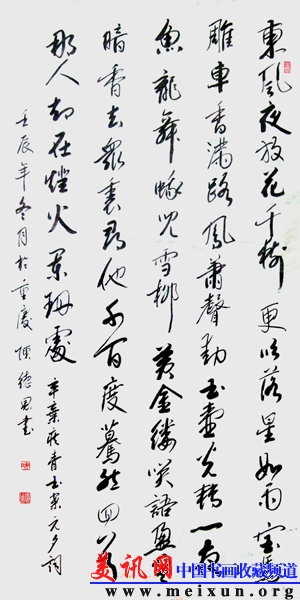 東風夜放花千樹 更吹落星如雨 寶馬
雕車香滿路 鳳簫聲動玉壺光轉一夜
魚龍舞 蛾兒雪柳 黃金縷笑語盈盈
暗香去眾裏尋他千百度驀然回首
那人却在燈火闌珊處 辛棄疾青玉案元夕詞
壬辰年冬月於重慶 德恩書
美讯网 中国书画收藏频道
www.meixun.org